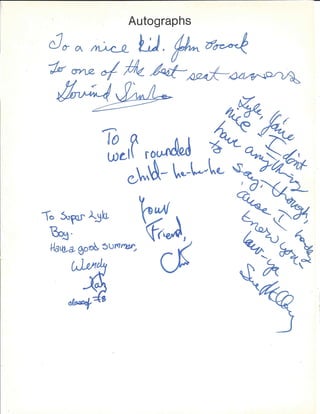 Autographs
To a nice kid. John Pocock
To one of the best seat savers
Govind
To a
well rounded
child-he-he-he
Your
Friend,
Chris
To Super Lyle
Boy.
Have a good summer,
Wendy
class of 78
Lyle,
nice I don't
have anything
to say, though,
'cause I hardly
knew you-
luv-ya
Sue